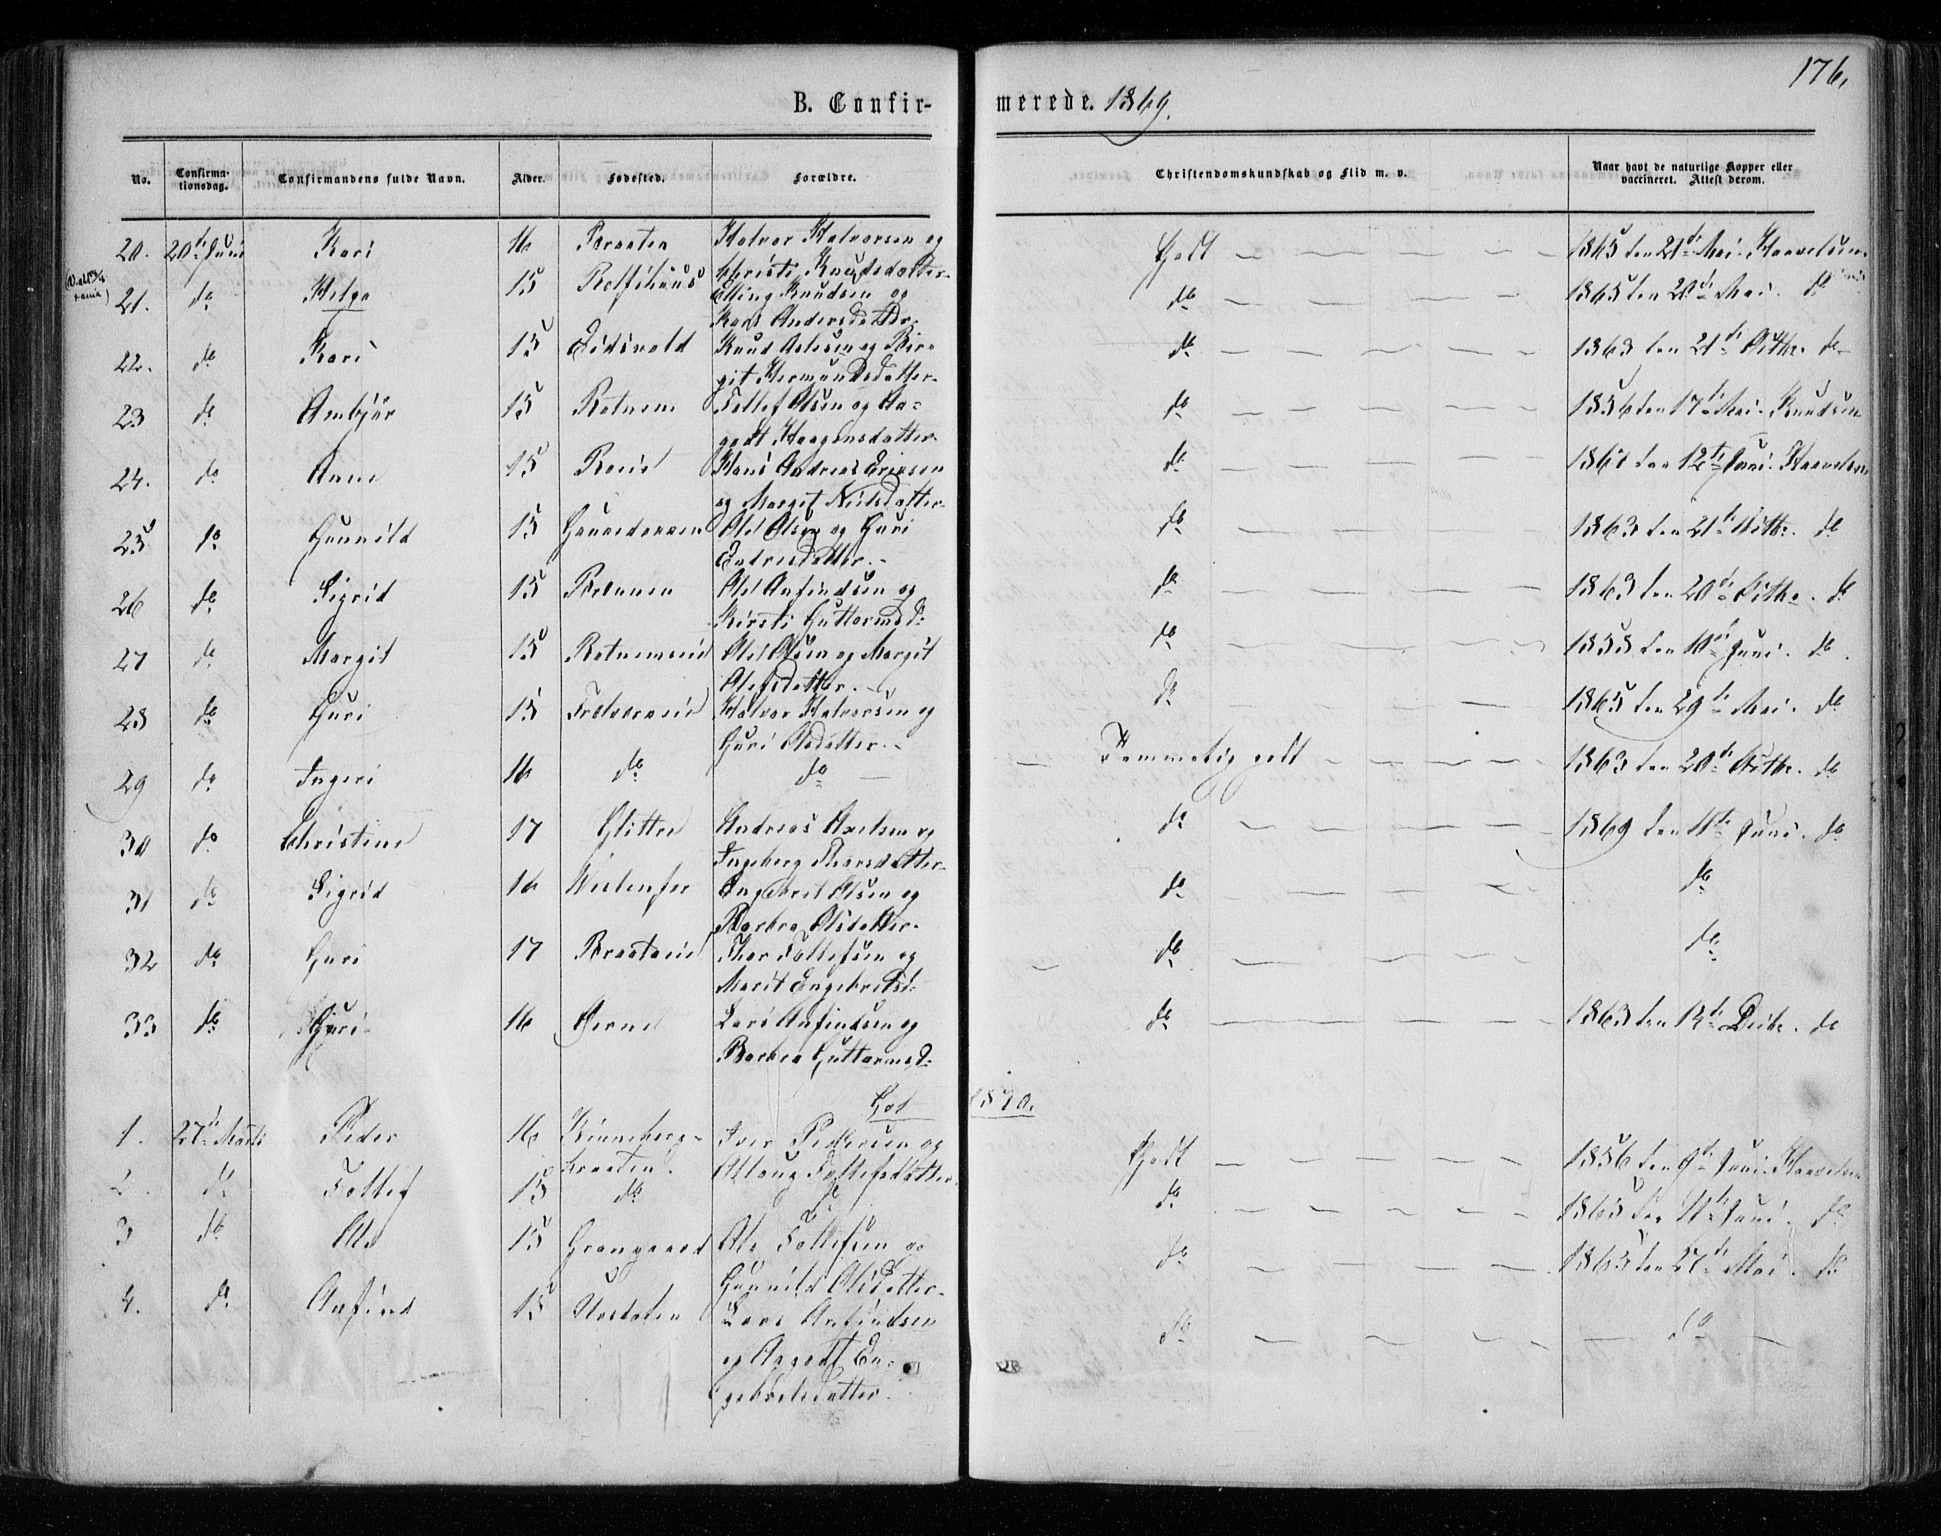 176.
B. Confir-
merede. 1869.
No.
Confirma-
tionsdag.
Confirmandens fulde Navn.
Alder.
Fødested.
Forældre.
Christendomskundskab og Flid m. v.
Naar havt de naturlige Kopper eller
vaccineret. Attest derom.
20. 20de Juni Kari 16 Braaten Halvor Halvorsen og
Christi Knudsdatter Godt 1865 den 21de Mai. Haavelsen
21. do Helga 15 Rolfshuus Elling Knudsen og
Kari Andersdatter do 1865 den 20de Mai. do
22. do Kari 15 Eidsvold Knud Aslesen og Bir-
git Hermundsdatter do 1863 den 21de Octbr. do
23 do Ambjør 15 Rotnem Tollef Olsen og Aa-
godt Haagensdatter do 1856 den 17de Mai. Knudsen
24. do Anne 15 Hans Andreas Ericsen
og Margit Nilsdatter do 1861 den 12te Juni. Haavelsen
25 do Gunnild 15 Ole Olsen og Guri
Endresdatter do 1863 den 21de Octbr. do
26 do Sigrid 15 Brennen Ole Anfindsen og
Kirsti Guttormsd: do 1863 den 20de Octbr. do
27 do Margit 15 Rotnemeie Ole Olsen og Margit
Olesdatter. do 1858 den 10de Juni. do
28 do Guri 15 Halvor Halvorsen og
Guri Olsdatter. do 1865 den 29de Mai. do
29 do Ingeri 16 do do Temmelig godt 1863 den 20de Octbr. do
30 do Christine 17 Glittre Andreas Axelsen og
Ingeborg Thorsdatter do 1869 den 11te Juni. do
31 do Sigrid 16 Engebret Olsen og
Barbra Olsdatter do do
32 do Guri 17 Braateeie Thor Tollefsen og
Marit Engebretsd: do do
33 do Guri 16 Lars Anfindsen og
Barbra Guttormsd: do 1863 den Decbr. do
Gol 1870.
1. 27de Marts Peder 16 Kinneberg-
braaten. Iver Pedersen og
Aslaug Tollefsdatter Godt 1856 den 9de Juni. Haavelsen
2. do Tollef 15 do do do 1865 den 11te Juni. do
3 do Ole 15 Grøngaard Ole Tollefsen og
Gunnild Olsdatter do 1865 den 27de Mai. do
4. do Anfind 15 Ustdalen Lars Anfindsen
og Aagodt En-
gebretsdatter. do do